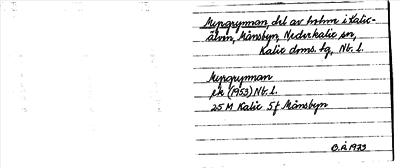 Myrgrynnan, del av holme i Kalix-
älven, Månsbyn, Nederkalix sn,
Kalix dms. tg, Nb. l.
Myrgrynnan
(1953) Nb. l.
25 M Kalix 5 f Månsbyn
1973